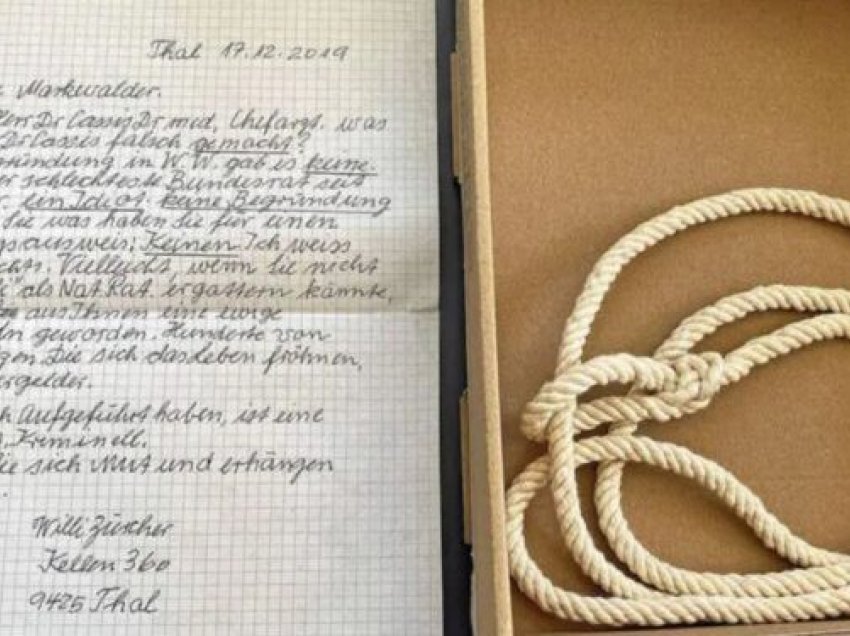 Thal 17.12.2019
Markwalder.
Herr Dr Cassis Dr med, Chefarzt. was
Dr Cassis falsch gemacht?
gründung in W.W. gab es keine.
er schlechteste Bundesrat seit
ein Idiot. keine Begründung
Sie was haben Sie für einen
gsausweis; Keinen Ich weiss
chts. Vielleicht, wenn Sie nicht
" als Nat. Rat. ergattern könnte,
aus Ihnen eine ewige
ln geworden. Hunderte von
gen Sie sich das Leben fröhnen,
ergelder.
h Aufgeführt haben, ist eine
Kriminell.
ie sich Mut und erhängen
Willi Zürcher
Kellen 360
9425 Thal